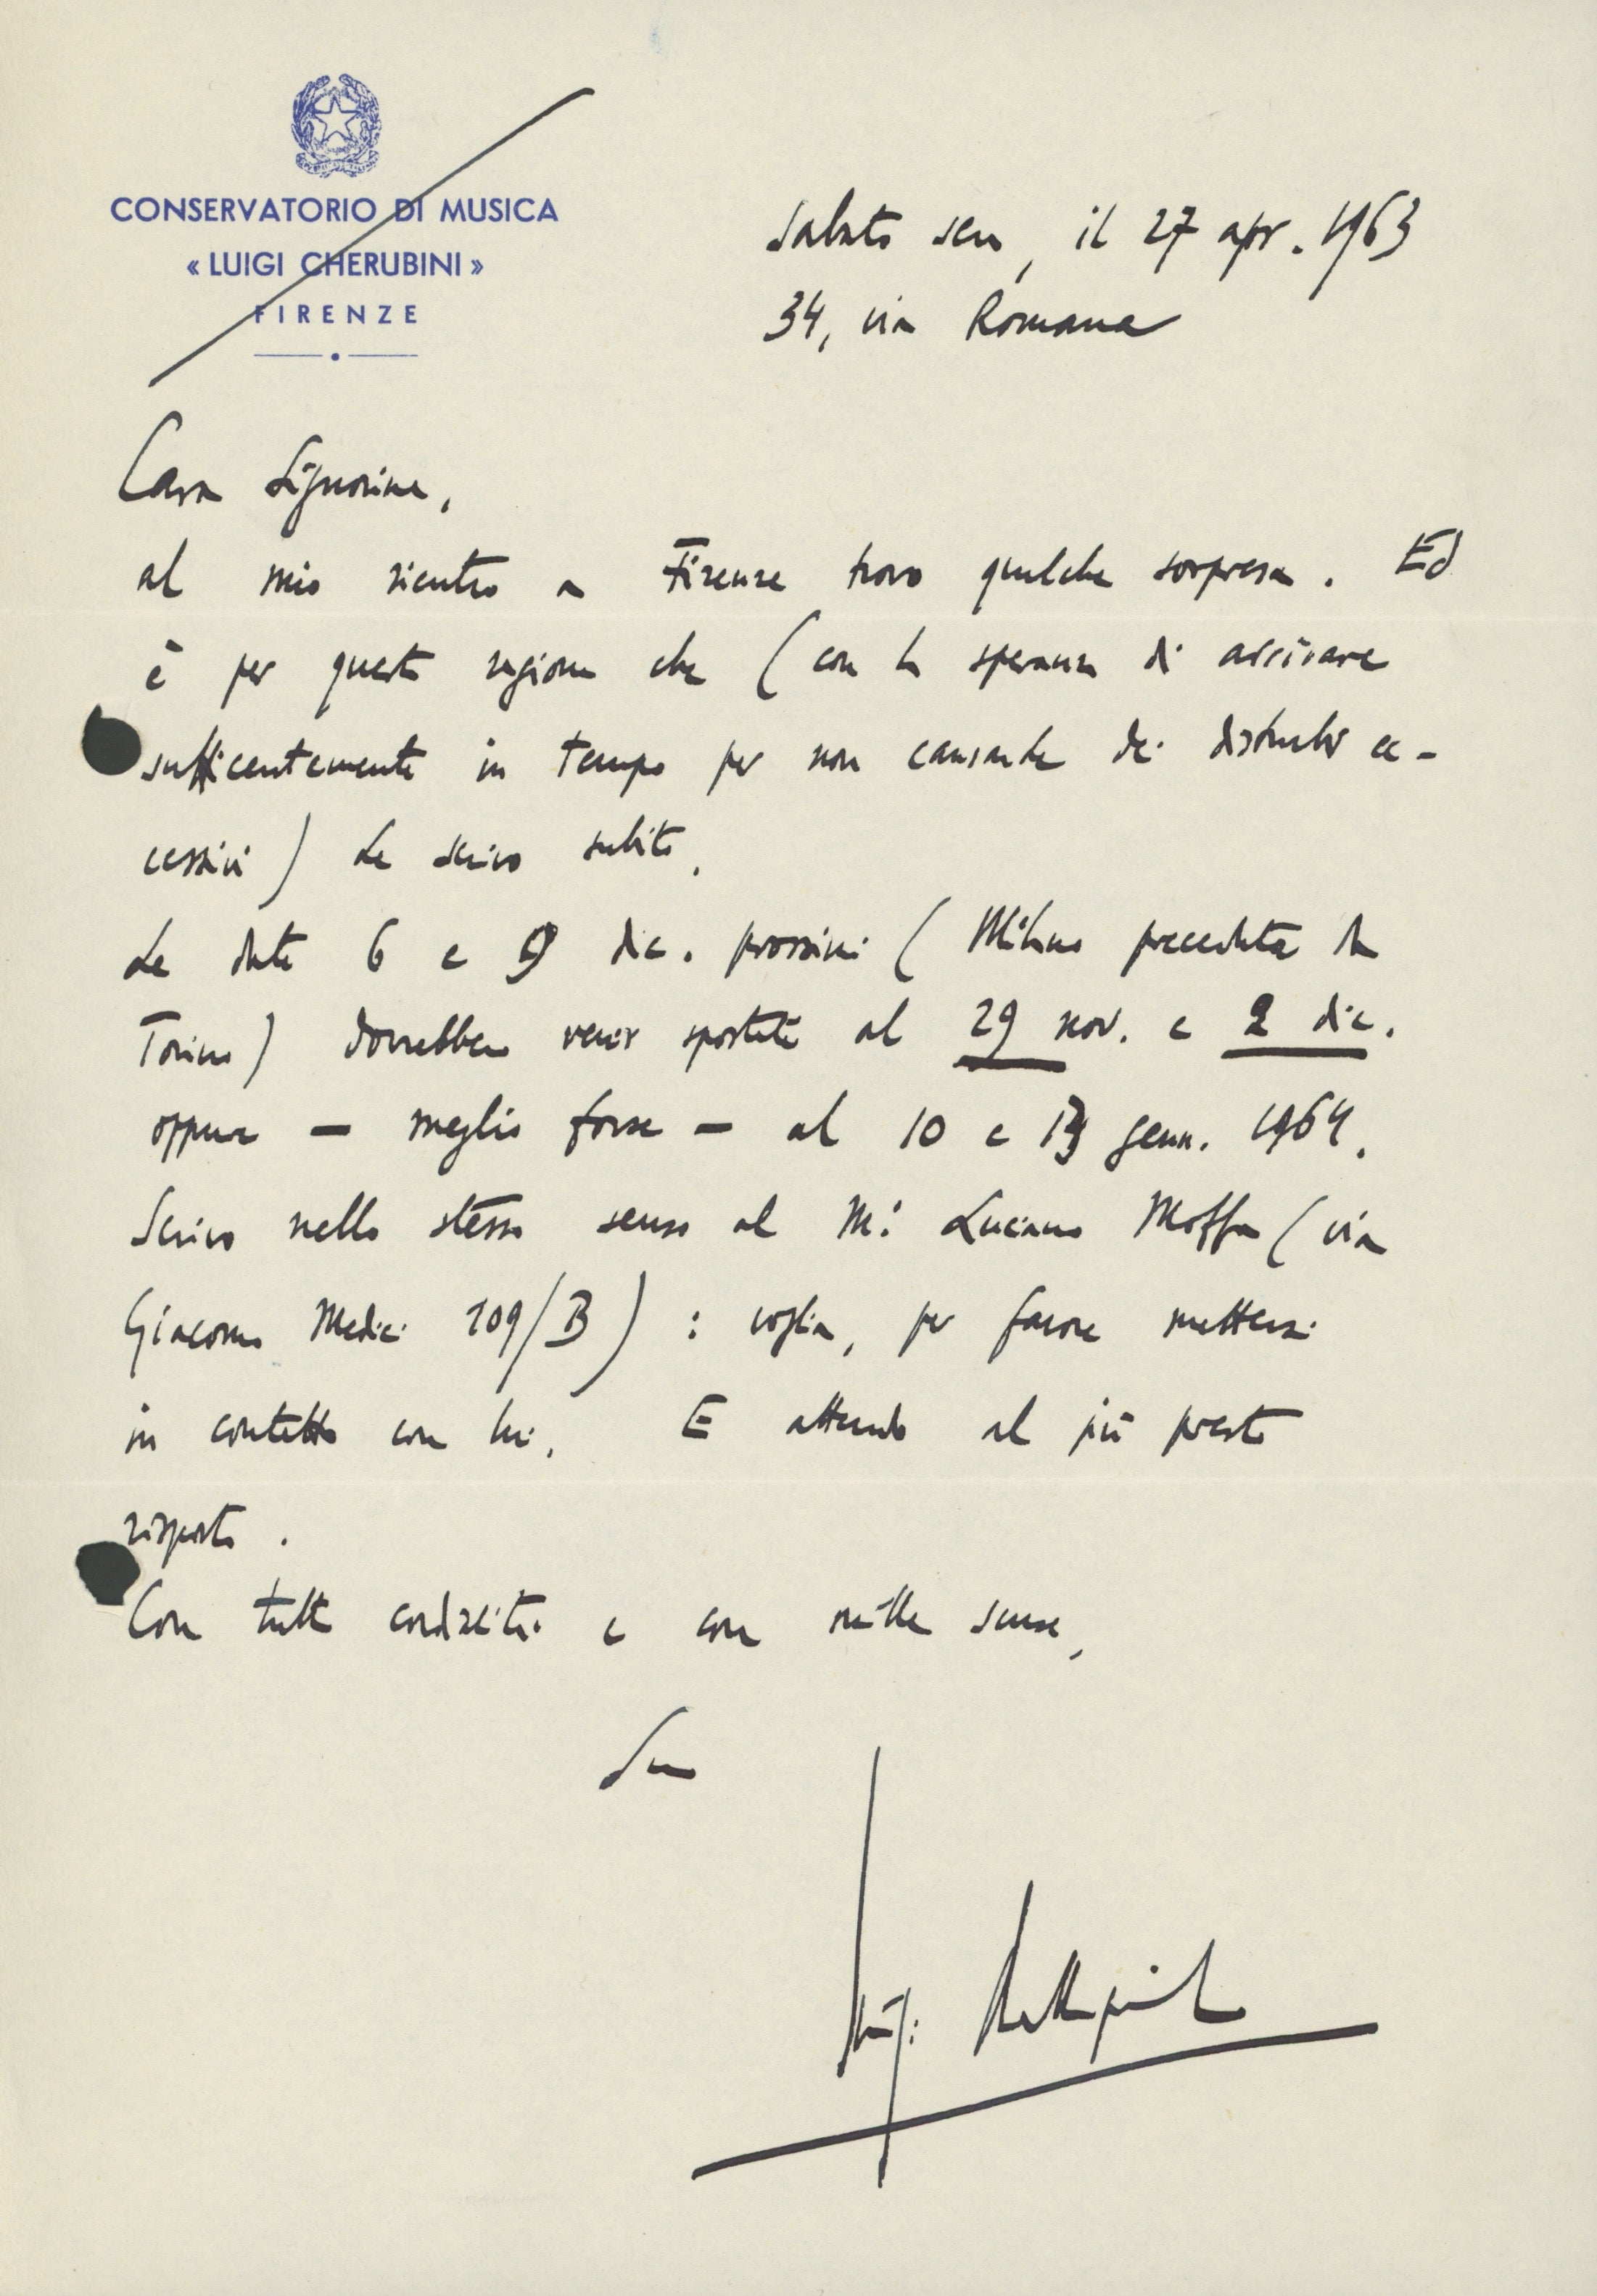 CONSERVATORIO DI MUSICA
« LUIGI CHERUBINI »
FIRENZE
Sabato sera, il 27 apr. 1963
34, via Romana
Cara Signorina,
al mio rientro a Firenze trovo qualche sorpresa. Ed
è per questa ragione che (con la speranza di arrivare
sufficentemente in tempo per non causarLe dei disturbi ec-
cessivi) Le scrivo subito.
Le date 6 e 9 dic. prossimi (Milano preceduta da
Torino) dovrebbero venir spostate al 29 nov. e 2 dic.
oppure – meglio forse – al 10 e 13 genn. 1964.
Scrivo nello stesso senso al M° Luciano Moffa (via
Giacomo Medici 109/B) : voglia, per favore mettersi
in contatto con lui. E attendo al più presto
risposta.
Con tutta cordialità e con mille scuse,
Suo
Luigi Dallapiccola